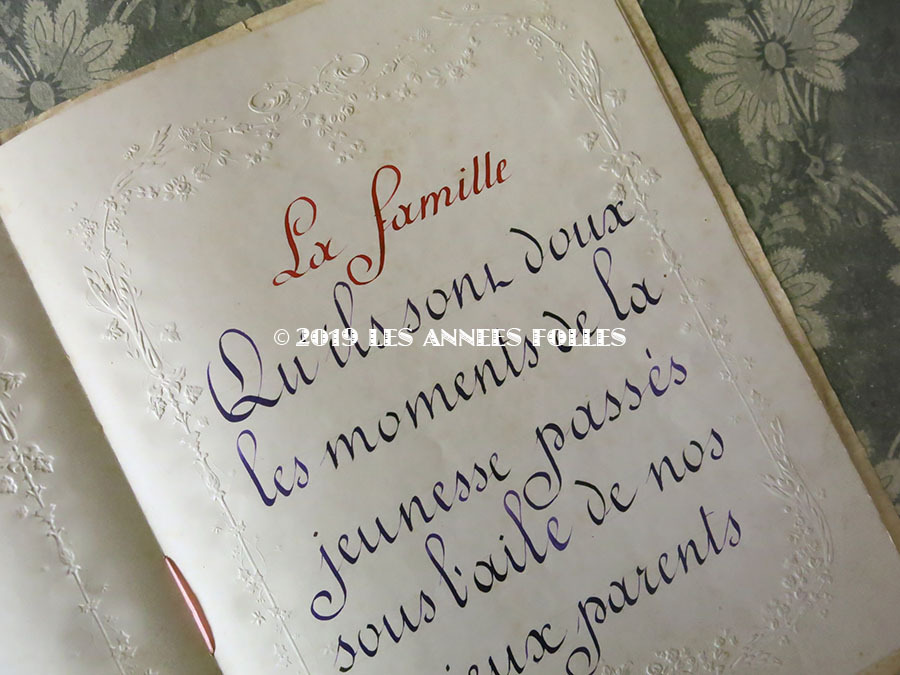 La famille
Qu'ils sont doux
© 2019 LES ANNEES FOLLES
les moments de la
jeunesse passés
sous l'aile de nos
parents